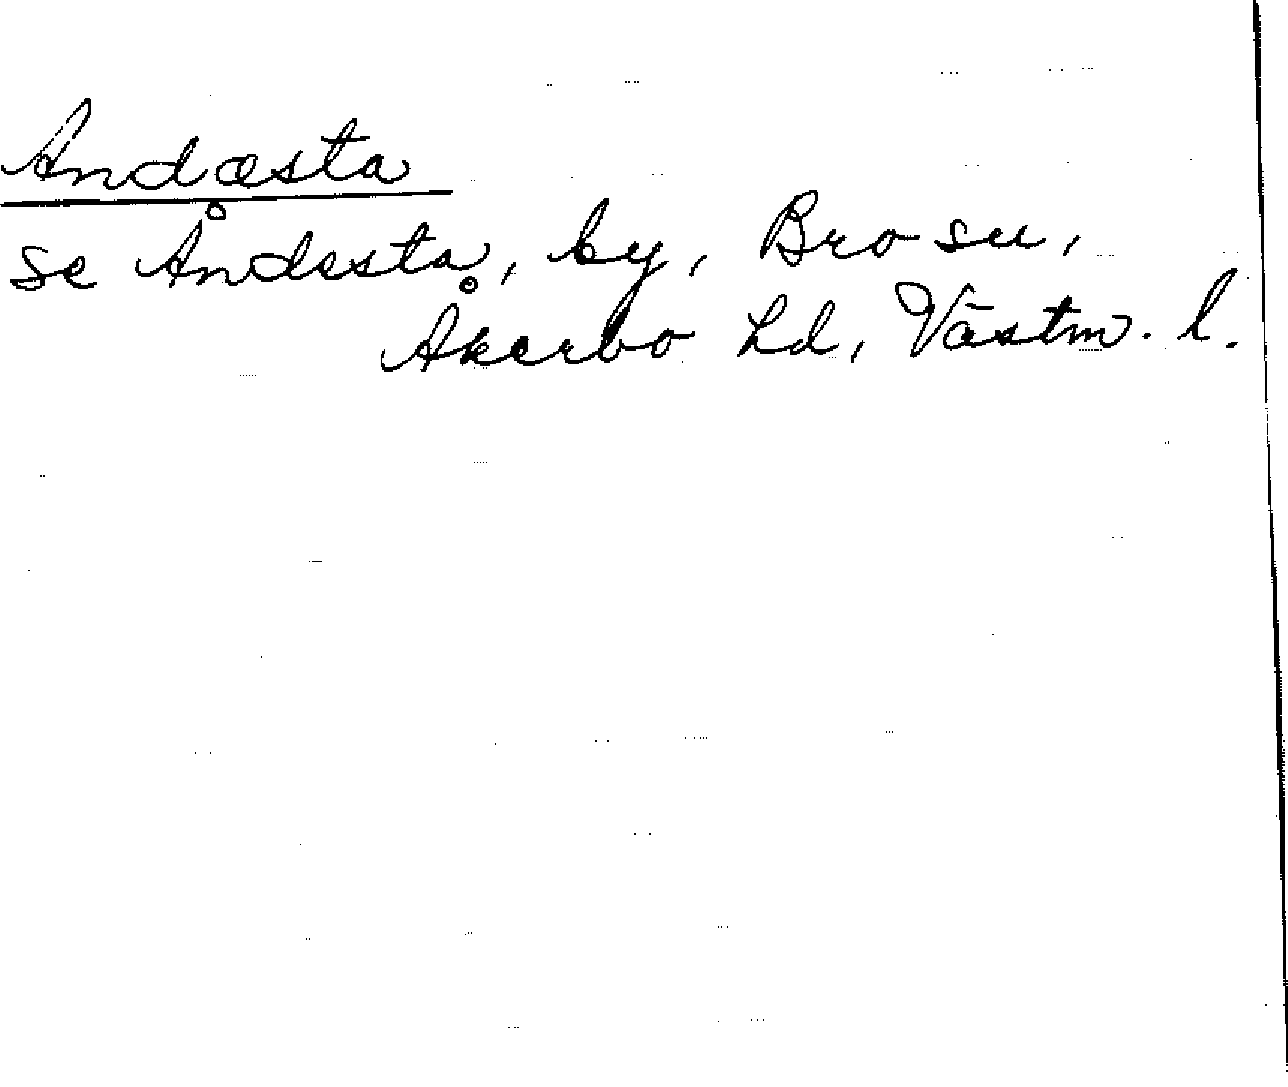 Andæsta
se Åndesta, by, Bro sn,
Åkerbo hd, Västm. l.